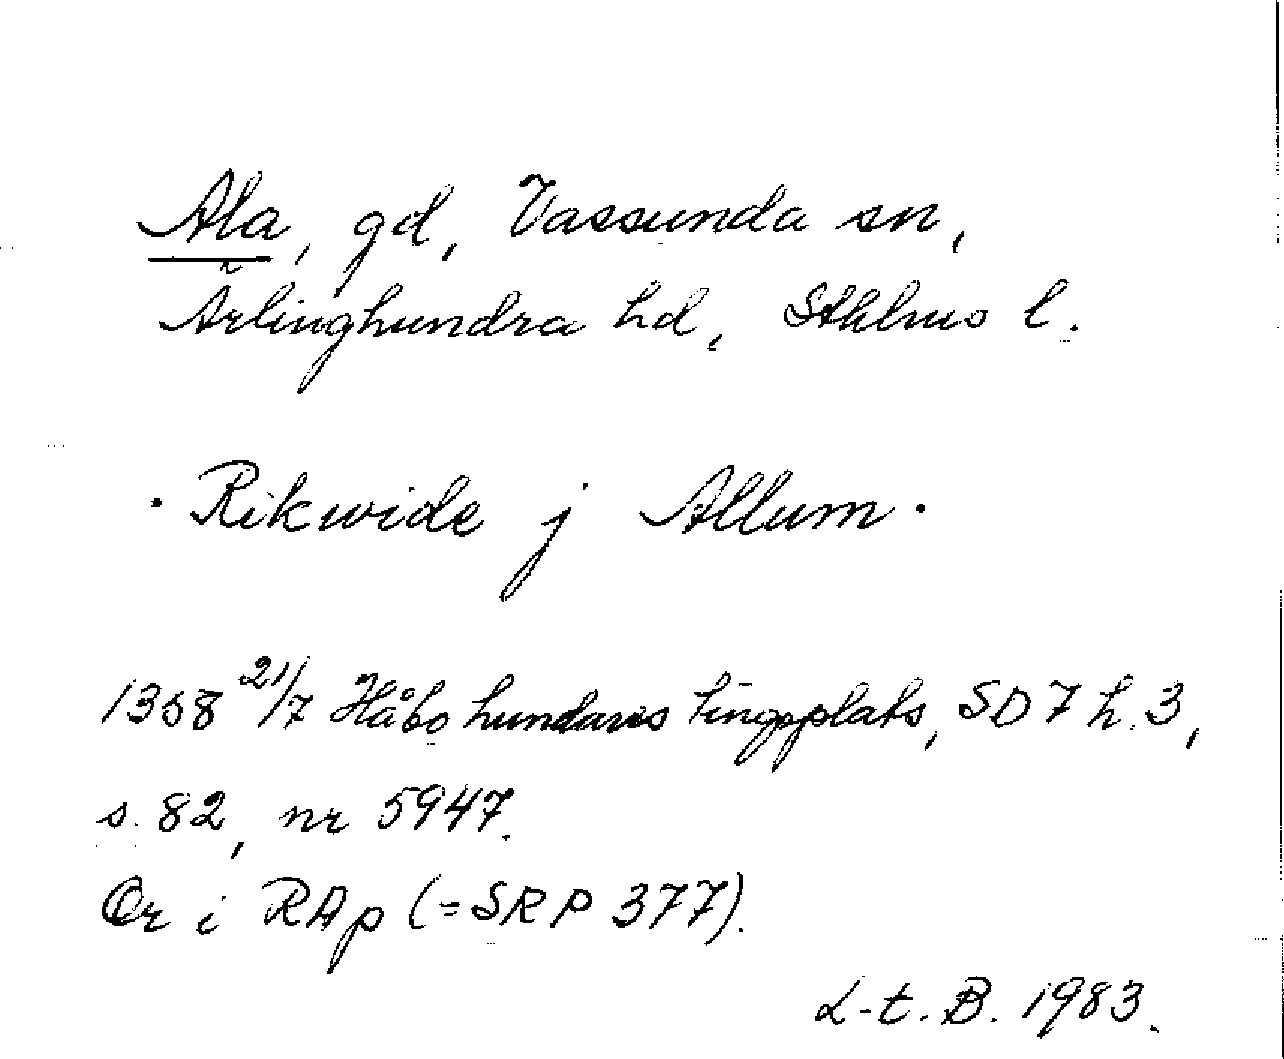 Ala, gd, Vassunda sn,
Ärlinghundra hd, Sthlms l.
· Rikwide j Allum ·
1358 21/7 Håbo hundares tingsplats, SD 7 h. 3,
s. 82, nr 5947.
Or i RAp (=SRP 377).
L-t. B. 1983.